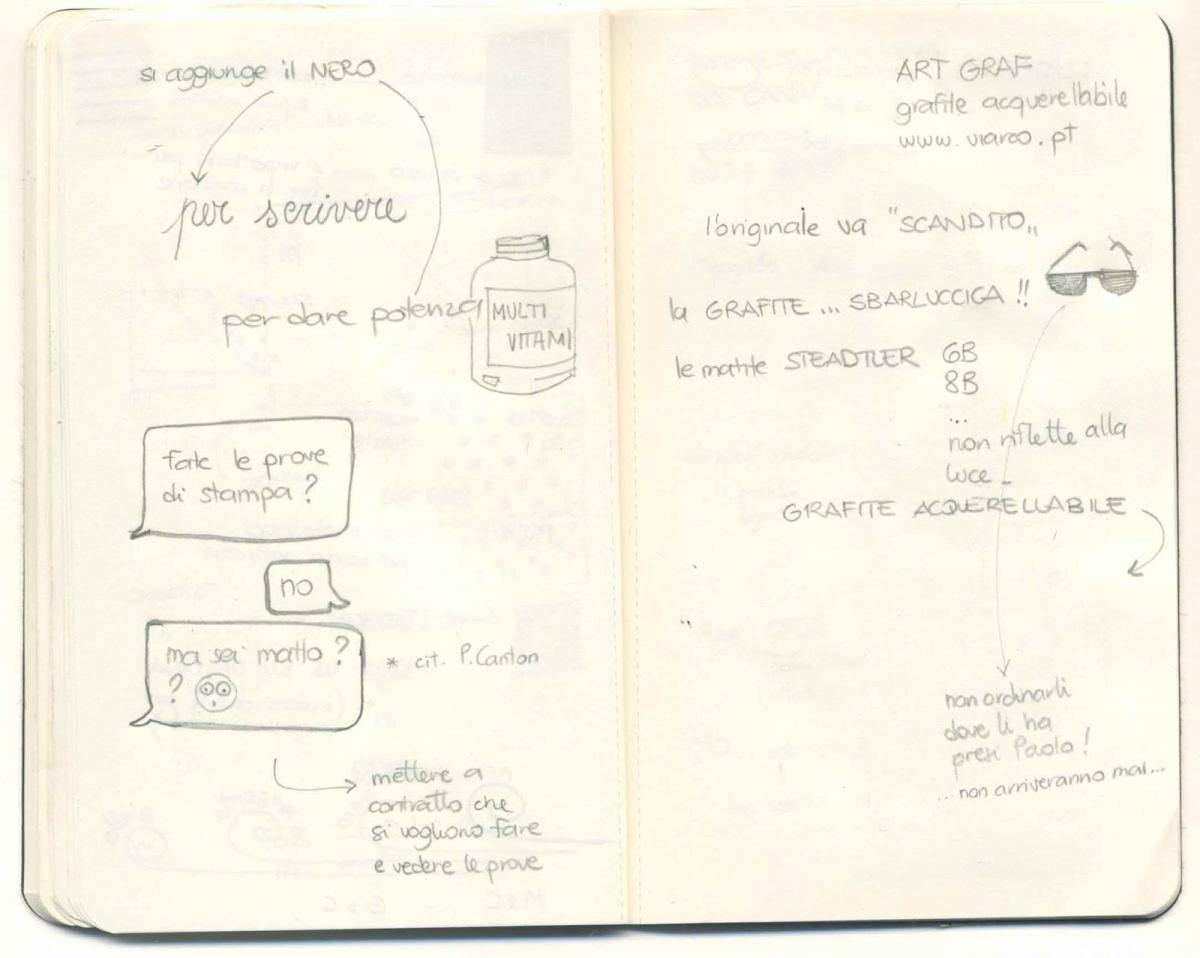 si aggiunge il NERO
per scrivere
per dare potenza
MULTI
VITAMI
fate le prove
di stampa?
no
ma sei matto?
?
* cit. P. Canton
mettere a
contratto che
si vogliono fare
e vedere le prove
ART GRAF
grafite acquerellabile
www.viarco.pt
l'originale va "SCANDITO„
la GRAFITE ... SBARLUCCICA !!
le matite STEADTLER 6B
8B
...
non riflette alla
luce _
GRAFITE ACQUERELLABILE
non ordinarli
dove li ha
presi Paolo!
...non arriveranno mai...